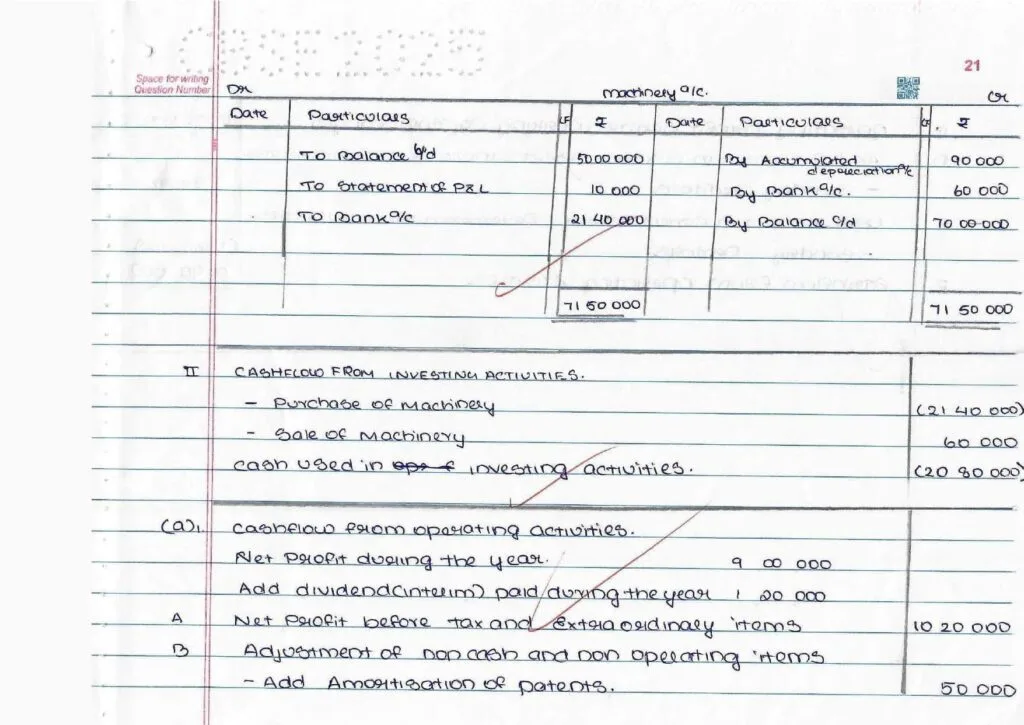 CBSE 2025
21
Space for writing
Question Number
Dr Machinery a/c. Cr
Date Particulars LF ₹ Date Particulars LF. ₹
To Balance b/d 5000 000 By Accumulated depreciation a/c 90 000
To Statement of P&L 10 000 By Bank a/c. 60 000
To Bank a/c 21 40 000 By Balance c/d 70 00 000
71 50 000 71 50 000
II CASHFLOW FROM INVESTING ACTIVITIES.
- Purchase of Machinery (21 40 000)
- Sale of Machinery 60 000
Cash used in investing activities. (20 80 000)
(a)1. Cashflow from operating activities.
Net Profit during the year. 9 00 000
Add dividend(interim) paid during the year 1 20 000
A Net Profit before tax and extraordinary items 10 20 000
B Adjustment of non cash and non operating items
- Add Amortisation of patents. 50 000